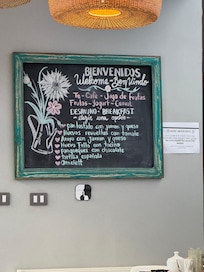 BIENVENIDOS
Welcome - Bem Vindo
Te - Café - Jugo de Frutas
Frutas - Yogurt - Cereal
DESAYUNO - BREAKFAST
- elegir una opción -
pan tostado con jamon y queso
Huevos revueltos con tomate
Huevo con jamon y queso
Huevo Frito con tocino
panqueques con chocolate
tortilla española
Omelett